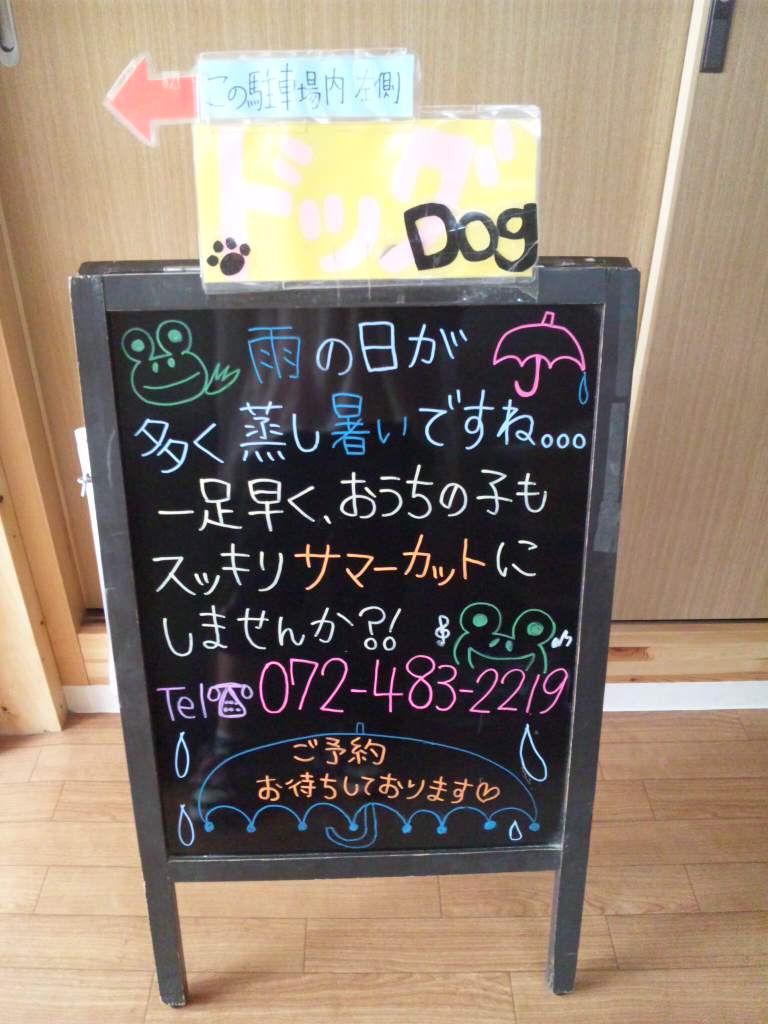 この駐車場内 左側
ドッグ
Dog
雨の日が
多く蒸し暑いですね。。。
一足早く、おうちの子も
スッキリサマーカットに
しませんか?!
Tel☎072-483-2219
ご予約
お待ちしております♡